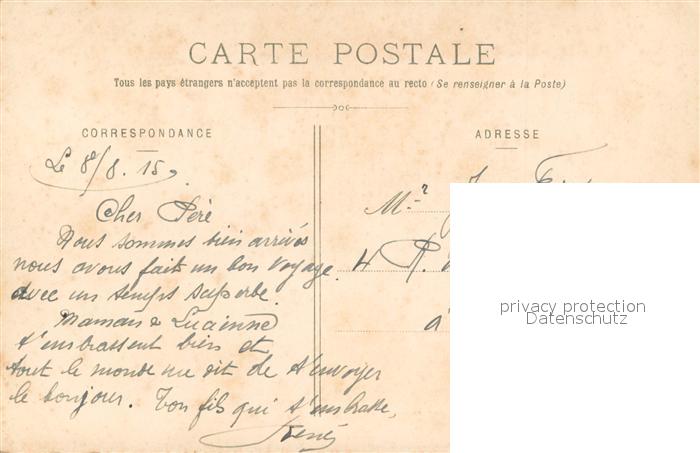 CARTE POSTALE
Tous les pays étrangers n'acceptent pas la correspondance au recto (Se renseigner à la Poste)
CORRESPONDANCE
Le 8/8. 15
Cher Père
Nous sommes bien arrivés
nous avons fait un bon voyage
avec un temps superbe.
Maman & Lucienne
t'embrassent bien et
tout le monde me dit de t'envoyer
le bonjour. Ton fils qui t'embrasse,
René
ADRESSE
Mr
4 R.
à
privacy protection
Datenschutz